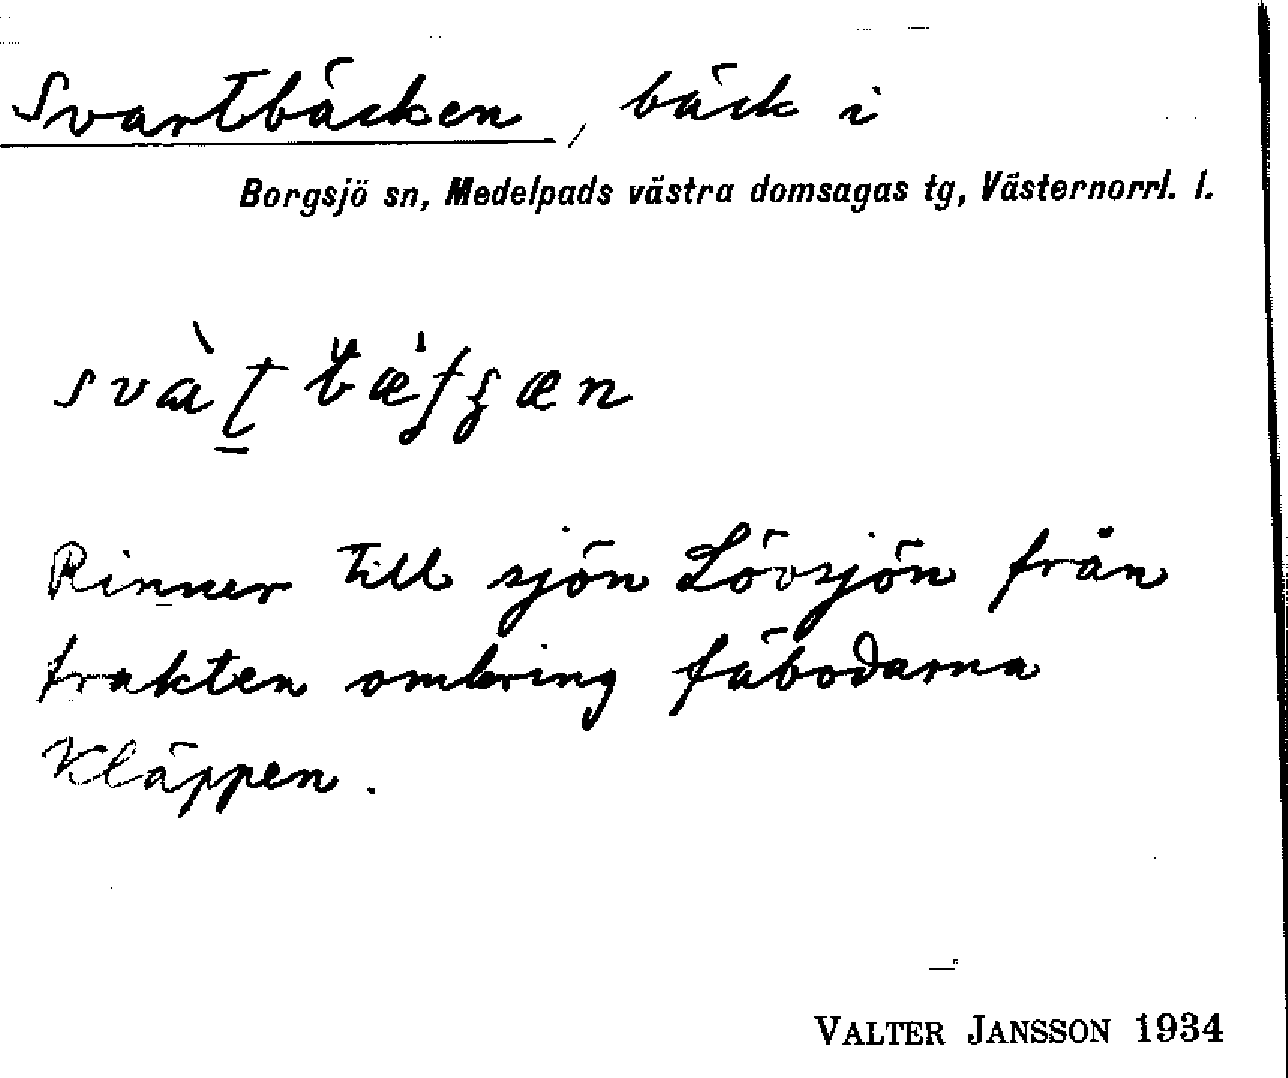 Svartbäcken, bäck i
Borgsjö sn, Medelpads västra domsagas tg, Västernorrl. l.
Rinner till sjön Lövsjön från
trakten omkring fäbodarna
Kläppen.
VALTER JANSSON 1934